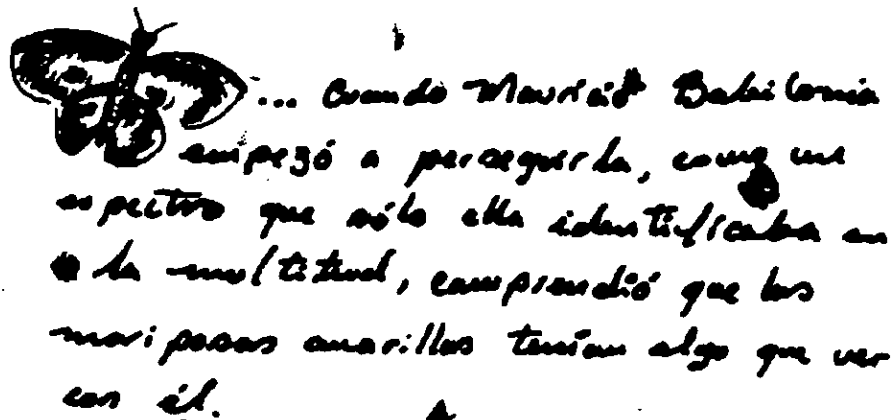 ... Cuando Mauricio Babilonia
empezó a perseguirla, como un
espectro que sólo ella identificaba en
la multitud, comprendió que las
mariposas amarillas tenían algo que ver
con él.